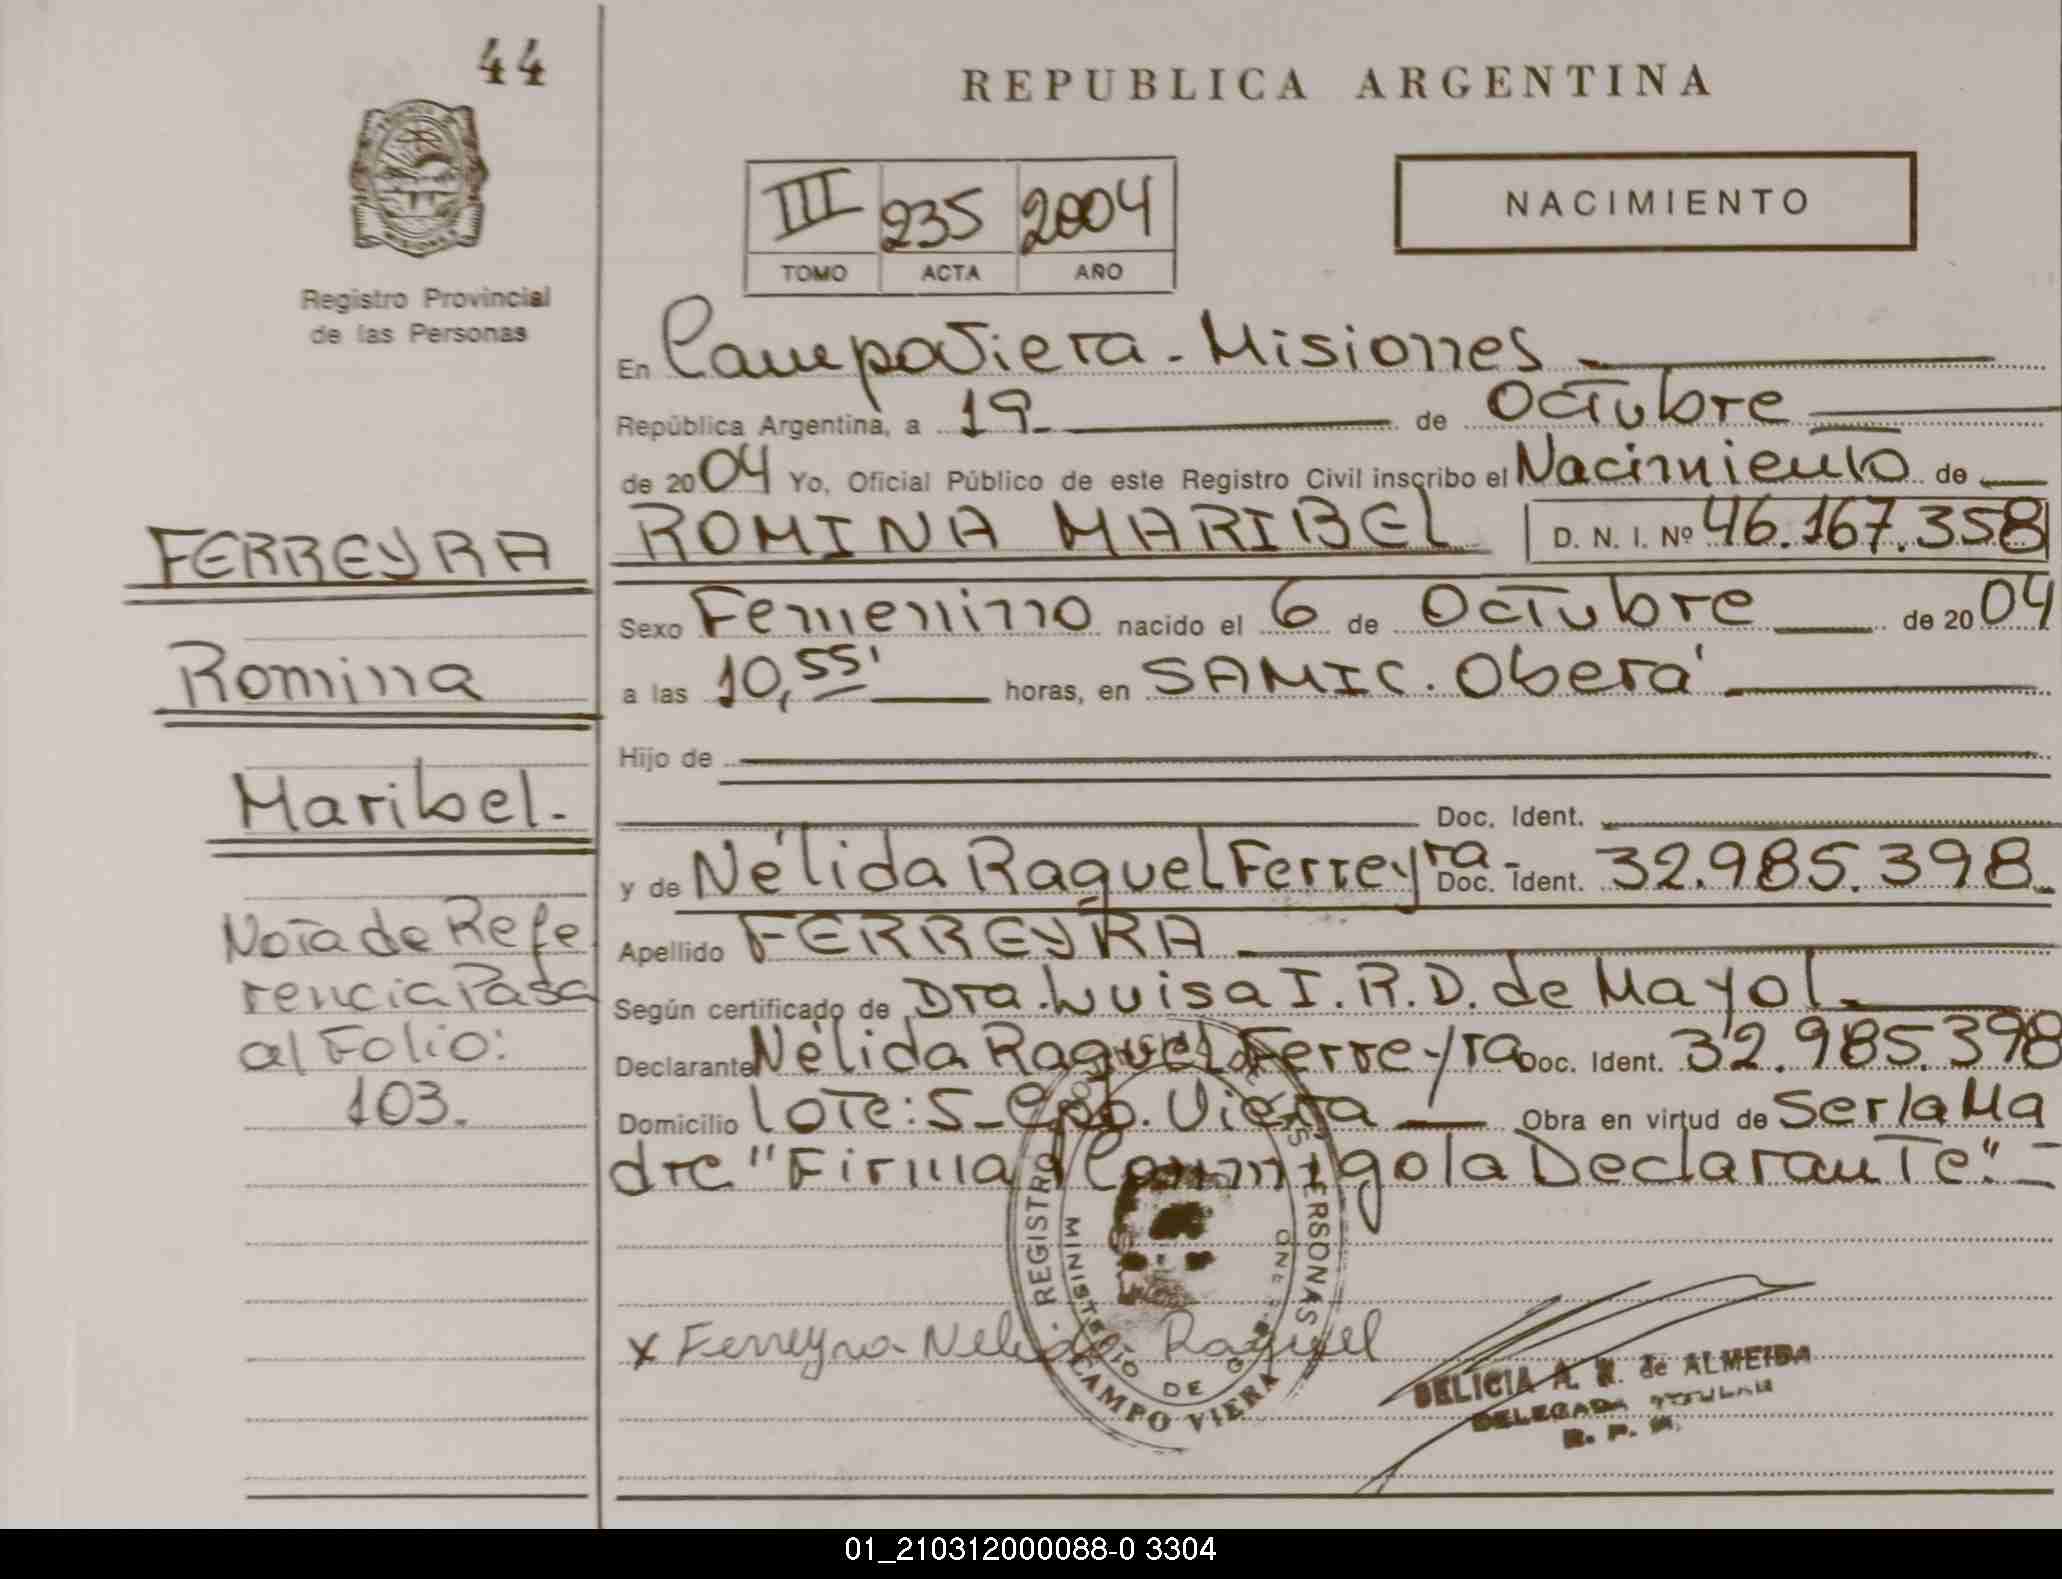 44
REPUBLICA ARGENTINA
NACIMIENTO
III 235 2004
TOMO ACTA AÑO
Registro Provincial
de las Personas
En CampoViera - Misiones
República Argentina, a 19 de Octubre
de 2004 Yo, Oficial Público de este Registro Civil inscribo el Nacimiento de
ROMINA MARIBEL D. N. I. Nº 46.167.358
FERREYRA
Sexo Femenino nacido el 6 de Octubre de 2004
Romina
a las 10,55' horas, en SAMIC. Oberá
Hijo de
Maribel.-
Doc. Ident.
y de Nélida Raquel Ferreyra - Doc. Ident. 32.985.398
Apellido FERREYRA
Nota de Refe
rencia Pasa
al Folio:
103.
Según certificado de Dra. Luisa I. R. D. de Mayol
Declarante Nélida Raquel Ferreyra Doc. Ident. 32.985.398
Domicilio Lote: 5 - Cpo. Viera Obra en virtud de Ser la Ma
dre "Firma Conmigo la Declarante". -
REGISTRO PERSONAS
MINISTERIO DE
CAMPO VIERA
x Ferreyra Nelida Raquel
DELICIA A. de ALMEIDA
DELEGADA TITULAR
R. P.
01_210312000088-0 3304